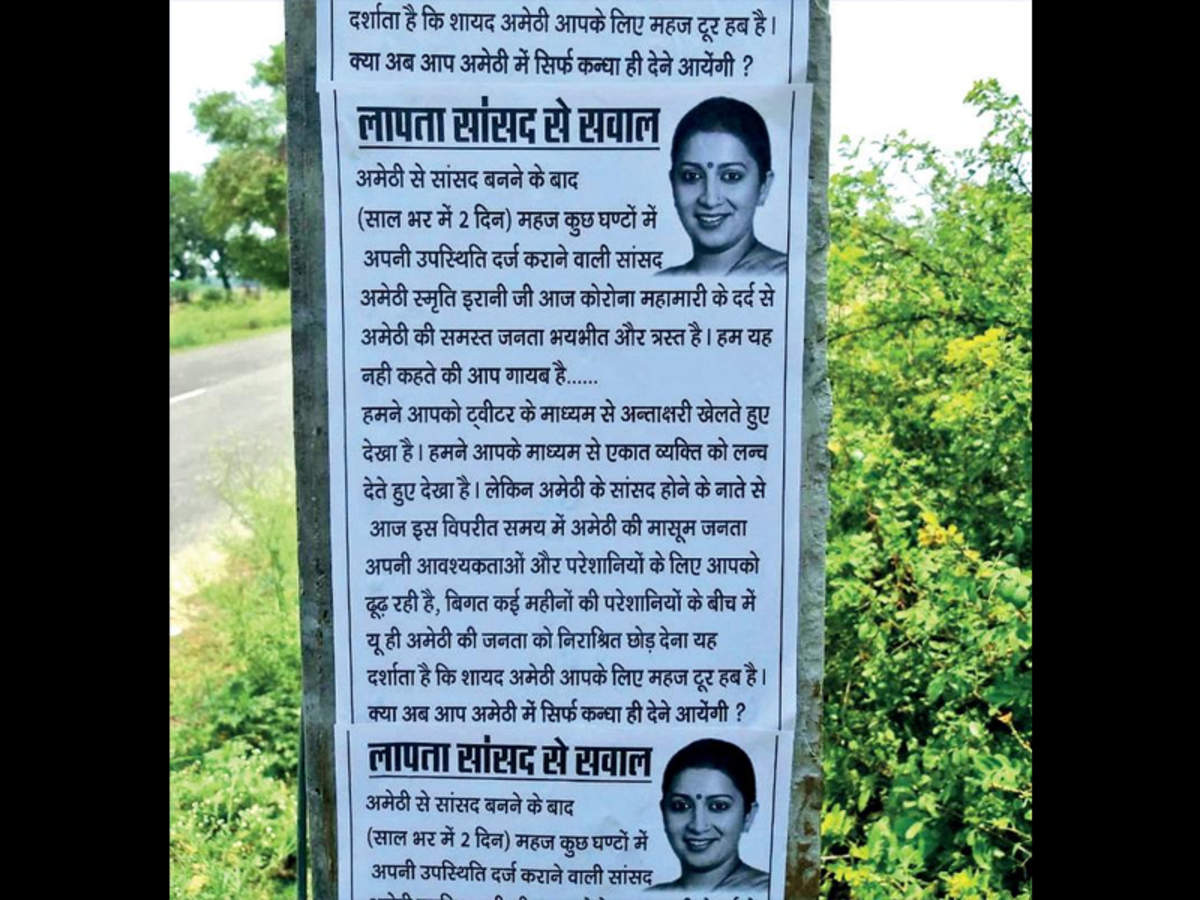 दर्शाता है कि शायद अमेठी आपके लिए महज टूर हब है।
क्या अब आप अमेठी में सिर्फ कन्धा ही देने आयेंगी ?
लापता सांसद से सवाल
अमेठी से सांसद बनने के बाद
(साल भर में 2 दिन) महज कुछ घण्टों में
अपनी उपस्थिति दर्ज कराने वाली सांसद
अमेठी स्मृति इरानी जी आज कोरोना महामारी के दर्द से
अमेठी की समस्त जनता भयभीत और त्रस्त है। हम यह
नही कहते की आप गायब है......
हमने आपको ट्वीटर के माध्यम से अन्ताक्षरी खेलते हुए
देखा है। हमने आपके माध्यम से एकात व्यक्ति को लन्च
देते हुए देखा है। लेकिन अमेठी के सांसद होने के नाते से
आज इस विपरीत समय में अमेठी की मासूम जनता
अपनी आवश्यकताओं और परेशानियों के लिए आपको
ढूढ़ रही है, बिगत कई महीनों की परेशानियों के बीच में
यू ही अमेठी की जनता को निराश्रित छोड़ देना यह
दर्शाता है कि शायद अमेठी आपके लिए महज टूर हब है।
क्या अब आप अमेठी में सिर्फ कन्धा ही देने आयेंगी ?
लापता सांसद से सवाल
अमेठी से सांसद बनने के बाद
(साल भर में 2 दिन) महज कुछ घण्टों में
अपनी उपस्थिति दर्ज कराने वाली सांसद